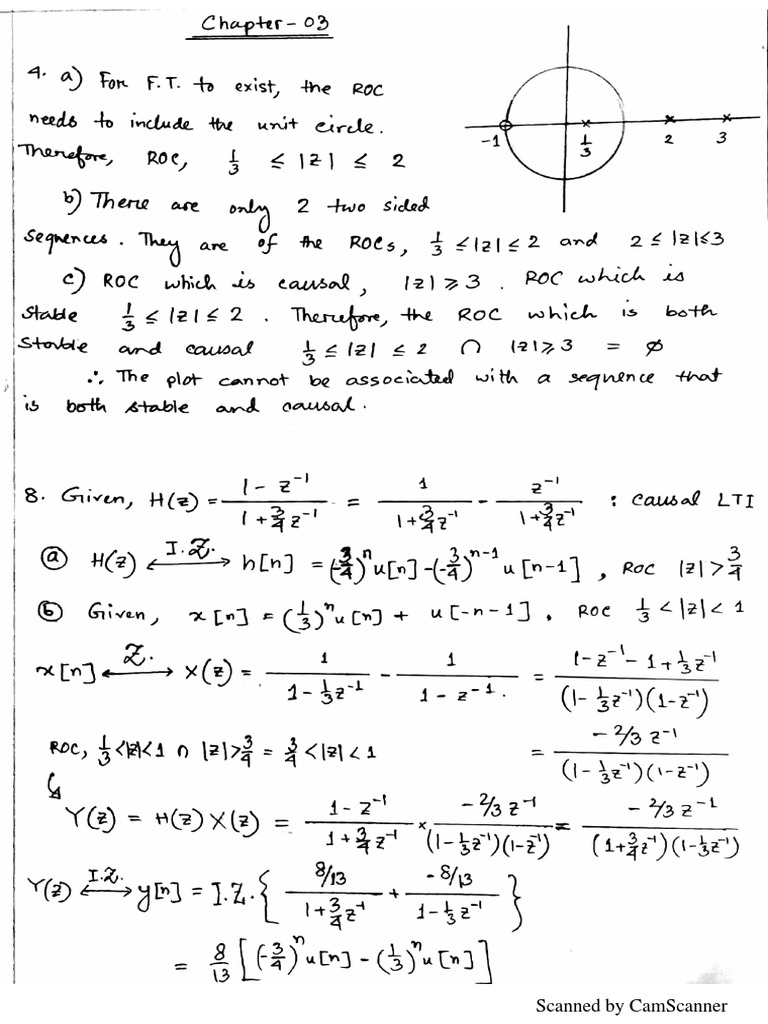 Chapter-03
4. a) For F.T. to exist, the ROC
needs to include the unit circle.
Therefore, ROC, 1/3 ≤ |z| ≤ 2
-1 1/3 2 3
b) There are only 2 two sided
sequences. They are of the ROCs, 1/3 ≤ |z| ≤ 2 and 2 ≤ |z| ≤ 3
c) ROC which is causal, |z| ⩾ 3. ROC which is
stable 1/3 ≤ |z| ≤ 2. Therefore, the ROC which is both
stable and causal 1/3 ≤ |z| ≤ 2 ∩ |z| ⩾ 3 = ∅
∴ The plot cannot be associated with a sequence that
is both stable and causal.
8. Given, H(z) = (1 - z⁻¹)/(1 + 3/4 z⁻¹) = 1/(1 + 3/4 z⁻¹) - z⁻¹/(1 + 3/4 z⁻¹) : causal LTI
ⓐ H(z) ⟷ I.Z. h[n] = (-3/4)ⁿ u[n] - (-3/4)ⁿ⁻¹ u[n-1], ROC |z| > 3/4
ⓑ Given, x[n] = (1/3)ⁿ u[n] + u[-n-1]. ROC 1/3 < |z| < 1
x[n] ⟷ Z. X(z) = 1/(1 - 1/3 z⁻¹) - 1/(1 - z⁻¹). = (1 - z⁻¹ - 1 + 1/3 z⁻¹)/((1 - 1/3 z⁻¹)(1 - z⁻¹))
ROC, 1/3 < |z| < 1 ∩ |z| > 3/4 = 3/4 < |z| < 1 = (-2/3 z⁻¹)/((1 - 1/3 z⁻¹)(1 - z⁻¹))
Y(z) = H(z) X(z) = (1 - z⁻¹)/(1 + 3/4 z⁻¹) × (-2/3 z⁻¹)/((1 - 1/3 z⁻¹)(1 - z⁻¹)) = (-2/3 z⁻¹)/((1 + 3/4 z⁻¹)(1 - 1/3 z⁻¹))
Y(z) ⟷ I.Z. y[n] = I.Z. { (8/13)/(1 + 3/4 z⁻¹) + (-8/13)/(1 - 1/3 z⁻¹) }
= 8/13 [ (-3/4)ⁿ u[n] - (1/3)ⁿ u[n] ]
Scanned by CamScanner